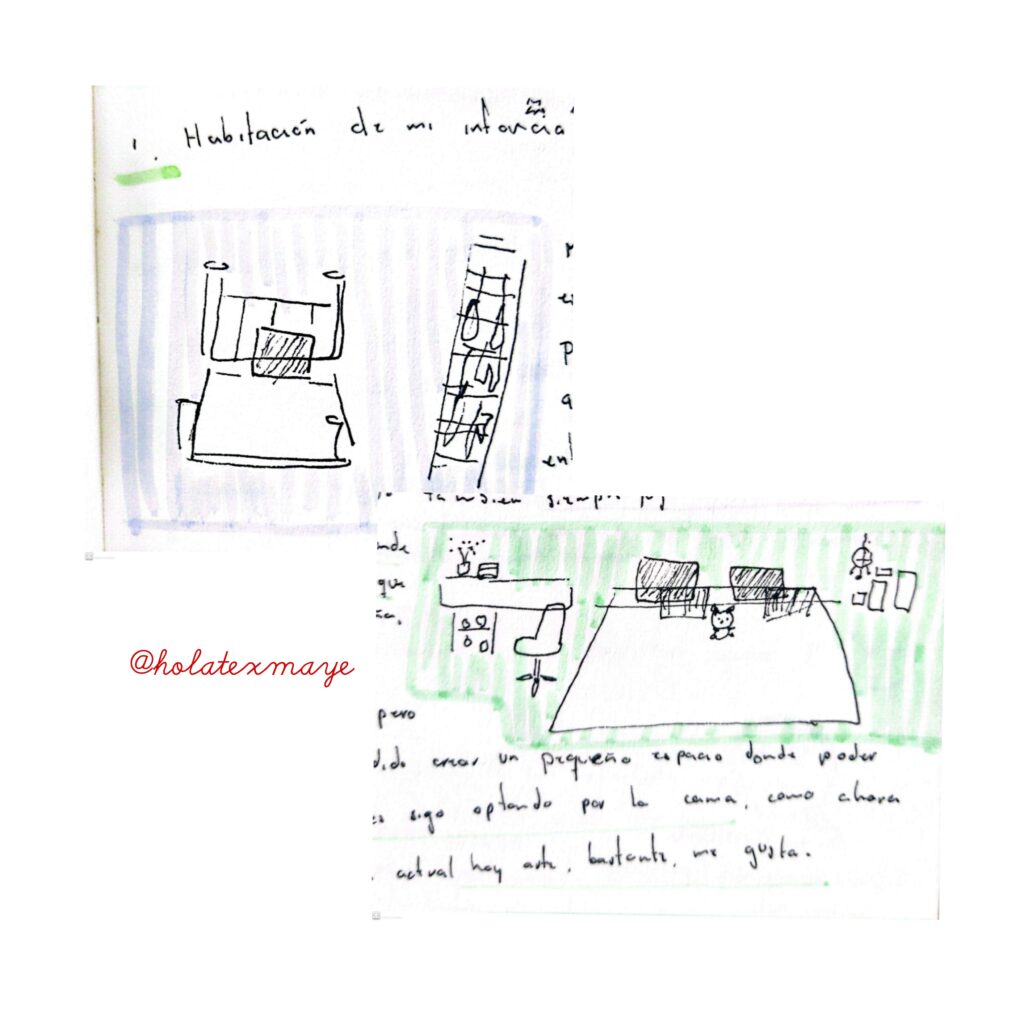 1. Habitación de mi infancia
en
también siempre
que
@holatexmaye
pero
crear un pequeño espacio donde poder
sigo optando por la cama, como ahora
actual hay arte, bastante, me gusta.